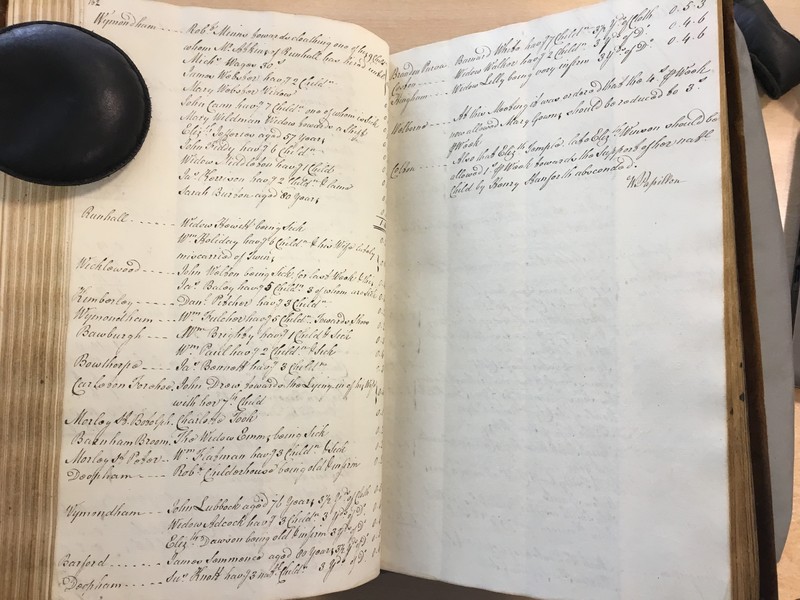 162
Wymondham ---- Robt. Minns towards cloathing one of his 9 Childn
whom Mr. Atkins of Runhall has hired
Michl. Wagar 30s
James Webster havg 2 Childn
Mary Webster Widow
John Cann havg 7 Childn one of whom is Sick
Mary Wildman Widow towards a Shift
Elizth Jefferow aged 57 Years
John Liddy havg 6 Childn
Widow Middleton havg 1 Child
Jas. Harrison havg 2 Childn & lame
Sarah Burton aged 80 Years
Runhall ------ Widow Howett being Sick
Wm. Holiday havg 6 Childn & his Wife lately
miscarried of Twins
Wicklewood ---- John Walton being Sick for last Week & this
Jas. Baley havg 5 Childn 3 of whom are Sick
Kimberley ---- Danl. Pitcher havg 3 Childn
Wymondham --- Wm. Fulcher havg 5 Childn towards Shoes
Bawburgh --- Wm. Brighty havg 1 Child & Sick
Wm. Paul havg 2 Childn & Sick
Bowthorpe --- Jas. Bennett havg 3 Childn
Carleton Forehoe, John Drew, towards the Lying in of his Wife
with her 7th Child
Morley St. Botolph, Charlotte Took
Barnham Broom, The Widow Emms being Sick
Morley St. Peter -- Wm. Flatman havg 3 Childn & Sick
Deopham --- Robt. Childerhouse being old & infirm
Wymondham --- John Lubbock aged 76 Years 3½ Yds of Cloth
Widow Adcock havg 3 Childn 3 Yds of Do.
Elizth Dawson being old & infirm 3 Yds of Do.
Barford ---- James Simmonds aged 80 Years 3½ Yds of Do.
Deopham ---- Sus. Knott havg 3 Childn 3 Yds of Do.
Brandon Parva Barnard White havg 7 Childn 3½ Yds of Cloth 0.5.3
Coston ---- Widow Walker havg 2 Childn 3 Yds of Do. 0.4.6
Hingham --- Widow Lilly being very infirm 3 Yds of Do. 0.4.6
At this Meeting it was ordered that the 4s ⅌ Week
Welborne --- now allowed Mary Gowing should be reduced to 3s
⅌ Week
Colton --- Also that Elizth Sempler late Elizth Vinson should be
allowed 1s ⅌ Week towards the support of her
Child by Henry Stanforth absconded.
W. Papillon